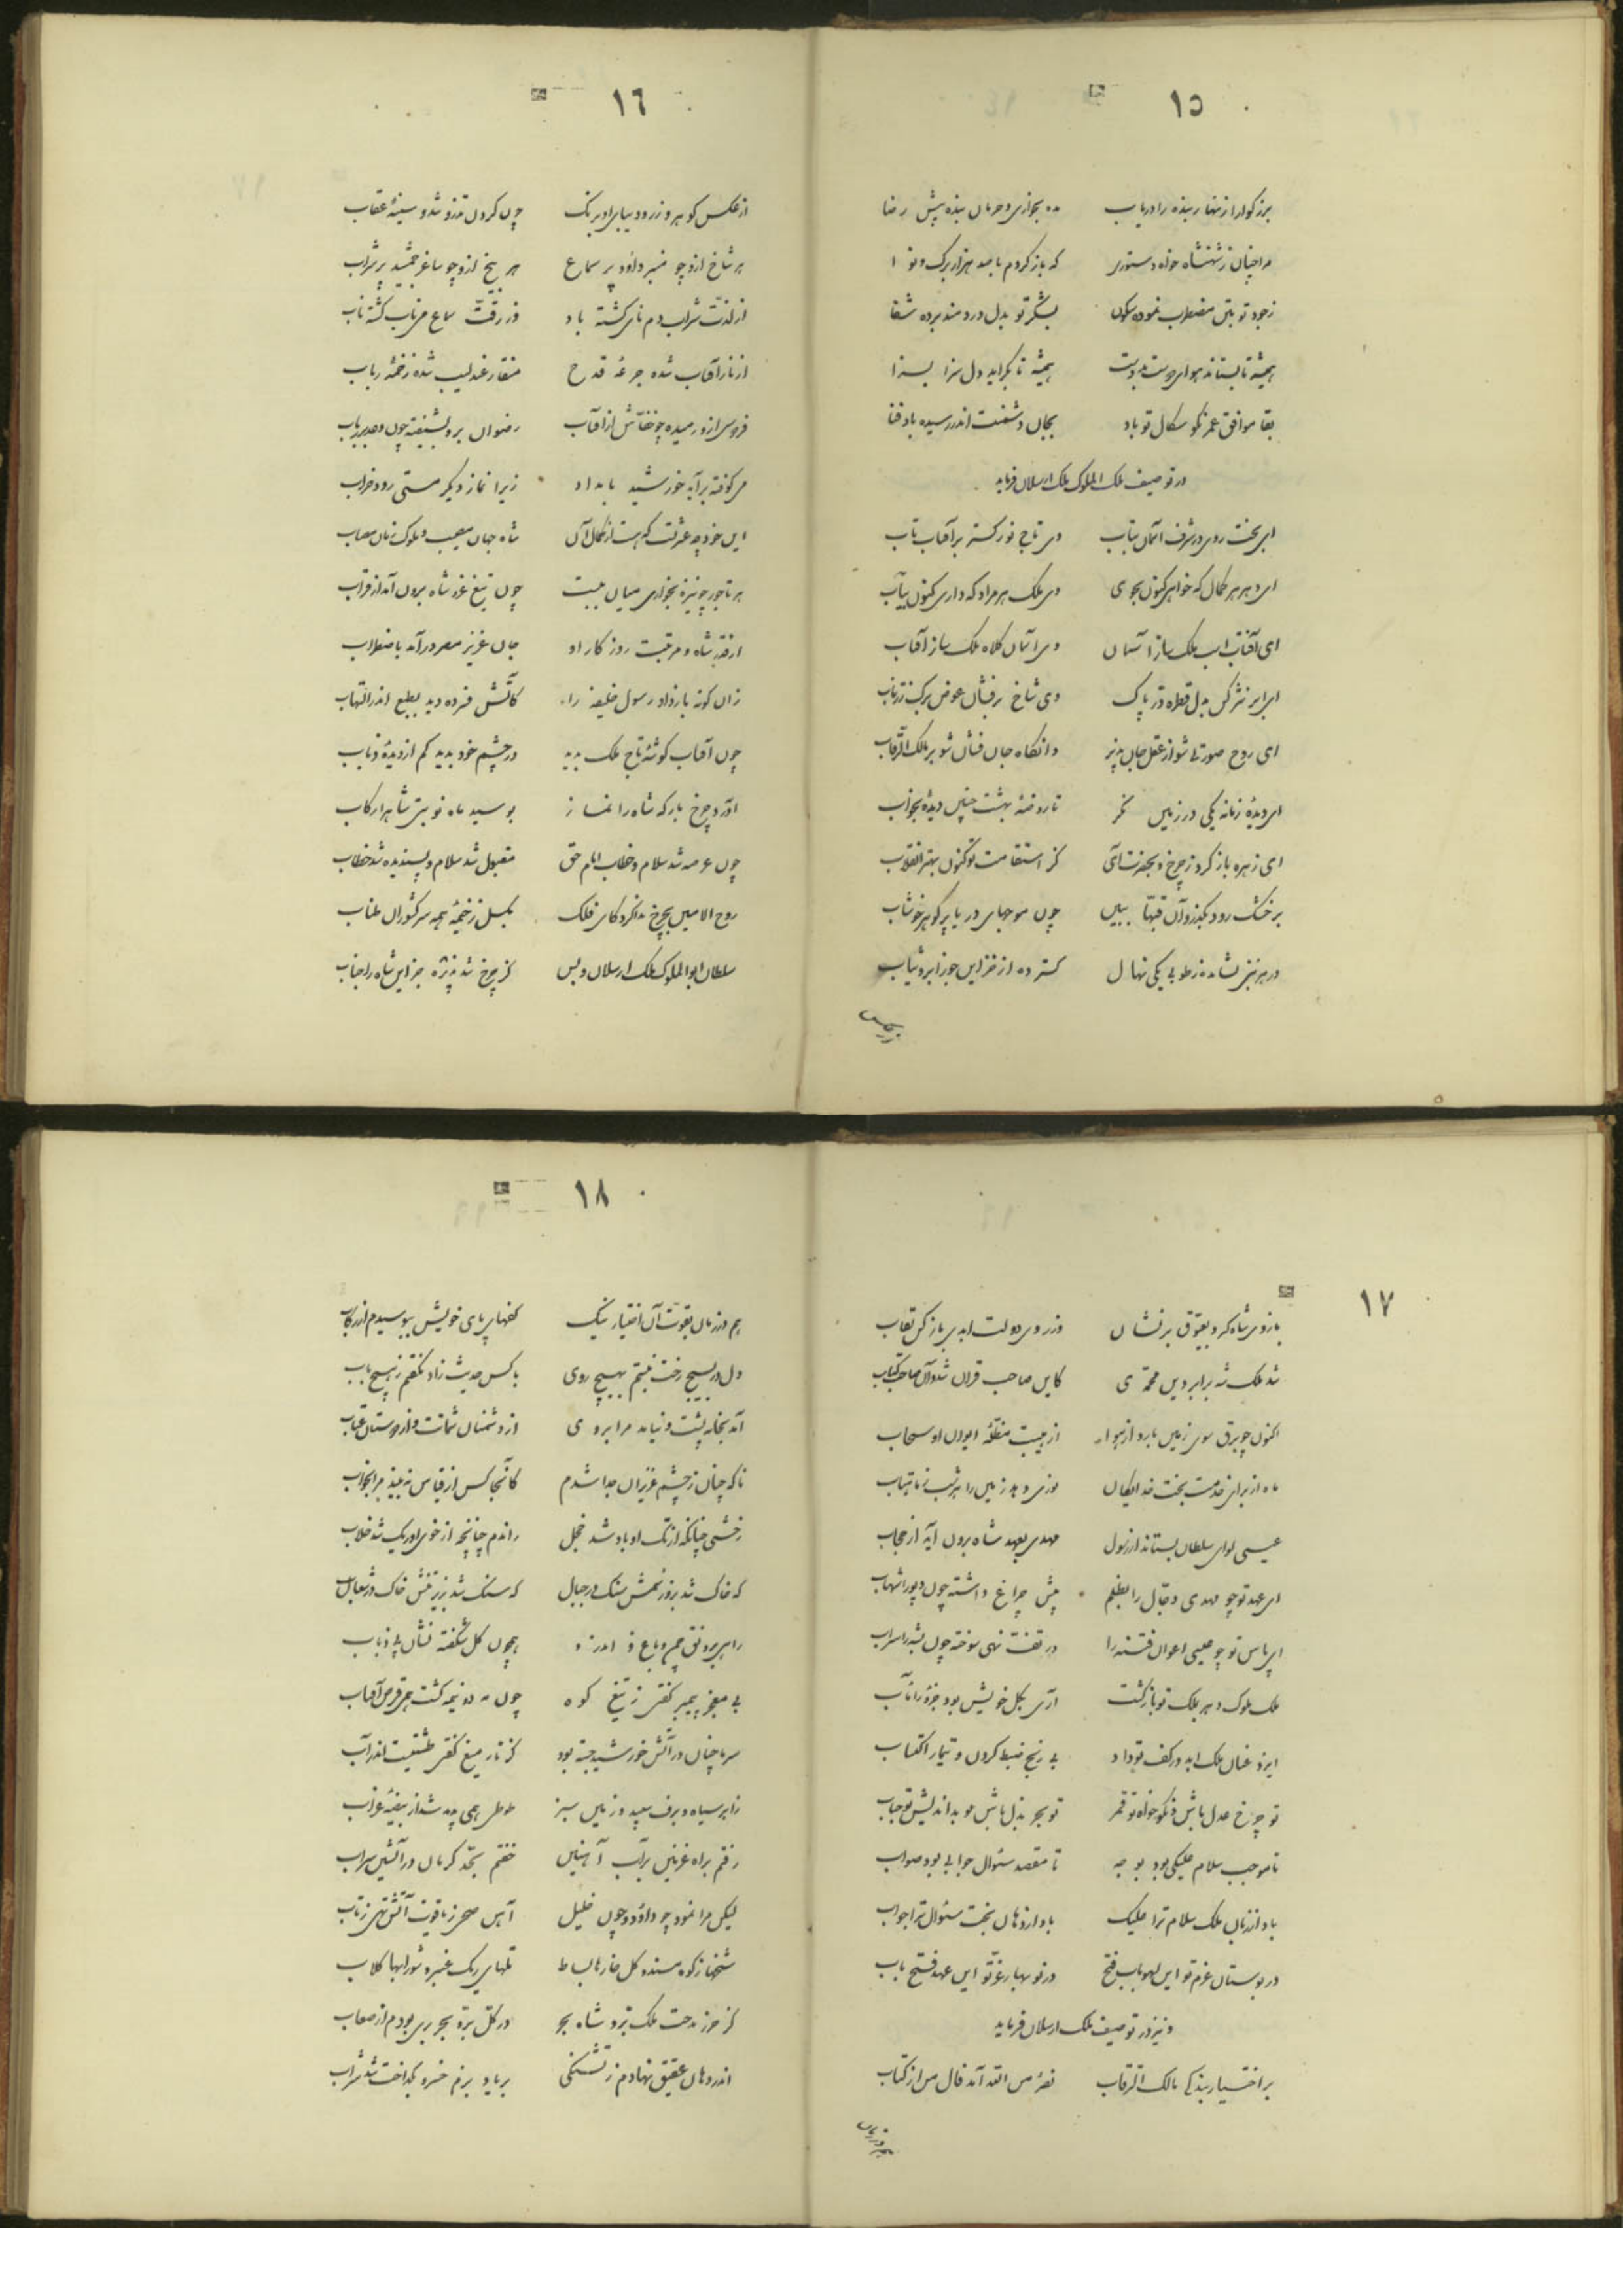 ١٥
بزرگوارا زنهار بنده را دریاب مده بخواری و حرمان بنده پیش رضا
مرا چنان ز شهنشاه خواه دستوری که باز گردم با صد هزار برگ و نوا
ز جود تو بتن مضطرب نموده سکون بشکر تو بدل دردمند برده شفا
همیشه تا بستاند هوای دوست ز دوست همیشه تا بگراید دل سزا بسزا
بقا موافق عمر نکو سگال تو باد بجان دشمنت اندر رسیده باد فنا
در توصیف ملک الملوک ملک ارسلان فرماید
ای بخت روی در شرف آسمان بتاب وی تاج نور گستر بر آفتاب تاب
ای دهر هر کمال که خواهی کنون بجوی وی ملک هر مراد که داری کنون بیاب
ای آفتاب اسب ملک ساز از آسمان وی آسمان کلاه ملک ساز آفتاب
ای ابر نثر کن بدل قطره در پاک وی شاخ برفشان عوض برگ زر ناب
ای روح صورتی شو از عقل جان پذیر وانگاه جان فشان شو بر مالک الرقاب
ای دیدهٔ زمانه یکی در زمین نگر تا روضهٔ بهشت چنین دیدهٔ بخواب
ای زهره باز گرد ز چرخ و بحضرت آی کز استقامت تو کنون بهتر انقلاب
بر خشک رود بگذر و آن قبه‌ها ببین چون موجهای دریا پر گوهر خوشاب
در هر بنی نشانده ز طوبی یکی نهال گسترده از خز این حورا برو ثیاب
١٦
از عکس گوهر و زر و دیبای او برنگ چون گردن تذرو شد و سینهٔ عقاب
هر شاخ ازو چو منبر داود پر سماع هر بیخ ازو چو ساغر جمشید پر شراب
از لذت شراب دم نای گشته باد وز رقت سماع می ناب گشته ناب
از ناز آفتاب شده جرعهٔ قدح منقار عندلیب شده زخمهٔ رباب
فردوس ازو رمیده چو خفاش از آفتاب رضوان برو شیفته چون دعد بر رباب
می کوفته برآید خورشید بامداد زیرا نماز دیگر مستی رود خراب
این خود چه عشرتست که هست از کمال آن شاه جهان مصیب و ملوک زمان مصاب
هر تاجور چو نیزه بخواری میان ببست چون تیغ عز شاه برون آمد از قراب
از قدر شاه و مرتبت روزگار او جان عزیز مصر درآمد باضطراب
زان گونه بار داد رسول خلیفه را کآتش فسرده دید بطبع اندر التهاب
چون آفتاب گوشهٔ تاج ملک بدید در چشم خود بدید کم از دیدهٔ ذباب
آورد چرخ بارگه شاه را نماز بوسید ماه نوبتی شاه را رکاب
چون عرضه شد سلام و خطاب امام حق مقبول شد سلام و پسندیده شد خطاب
روح الامین بچرخ ندا کرد کای فلک بگسل ز خیمهٔ همه سرکشوران طناب
سلطان ابوالملوک ملک ارسلان و بس کز چرخ شد پذیره جز این شاه را جناب
١٧
بازوی شاه کرد بعیوق بر نشان وز روی دولت ابدی باز کن نقاب
شد ملک شه برابر دین محمدی کاین صاحب قران شد و آن صاحب کتاب
اکنون چو برق سوی زمین بارد از هوا از هیبت مظلهٔ ایوان او سحاب
ماه از برای خدمت بخت خدایگان بوسی دهد زمین را هر شب ز ماهتاب
عیسی لوای سلطان بستاند از رسول مهدی بعهد شاه برون آید از حجاب
ای عهد تو چو مهدی دجال را بظلم پیش چراغ داشته چون دیو را شهاب
ای پاس تو چو عیسی اعوان فتنه را در تف تهی سوخته چون پشه را سراب
ملک ملوک دهر بملک تو بازگشت آری بکل خویش بود جزو را مآب
ایزد عنان ملک ابد در کف تو داد بی رنج ضبط کردن و تیمار اکتساب
تو چرخ عدل باش و نکوخواه تو قمر تو بحر بذل باش و بداندیش تو حباب
تا موجب سلام علیکی بود بوجه تا مقصد سئوال جوابی بود صواب
باد از زبان ملک سلام ترا علیک باد از دهان بخت سئوال ترا جواب
در بوستان عزم تو این لهو باب فتح در نوبهار عز تو این عهد فتح باب
و نیز در توصیف ملک ارسلان فرماید
بر اختیار بندگی مالک الرقاب نصر من الله آمد فال من از کتاب
١٨
هم در زمان بقوت آن اختیار نیک کفهای پای خویش ببوسیدم از رکاب
دل در بسیج رخت نبستم بهیچ روی با کس حدیث زاد نگفتم ز هیچ باب
آمد بخانه پشت و نیامد مرا بروی از دشمنان شماتت و از دوستان عتاب
ناگه چنان ز چشم عزیزان جدا شدم کآنجا کس از قیاس نبیند مرا بخواب
رخشی چنانکه از تک او باد شد خجل راندم چنانچه از خوی او ریگ شد خلاب
که خاک شد بزور سمش سنگ در جبال که سنگ شد بزیر تنش خاک در شعاب
راهی برونق چمن و باغ و اندرو همچون گل شکفته نشان پی ذباب
بی معجز پیمبر گفتی ز تیغ کوه چون مه دو نیمه گشت همی قرص آفتاب
سرما چنان در آتش خورشید جسته بود کز تار میغ گفتی طشتیست اندر آب
ز ابر سیاه و برف سپید و زمین سبز طوطی همی پدید شد از بیضهٔ غراب
رفتم براه غزنین بر آب آهنین خفتم بحد کرمان در آتشین سراب
لیکن مرا نمود چو داود و چون خلیل آهن صحرا ز یاقوت آتش تهی ز تاب
شخها ز کوه سنده گل خارها بساط تلهای ریگ عنبر و شورابها گلاب
کز حرز مدحت ملک بر و شاه بحر در کل بر و بحر بری بودم از صعاب
اندر دهان عقیق نهادم ز تشنگی بر یاد بزم خسرو بگداخت شد شراب